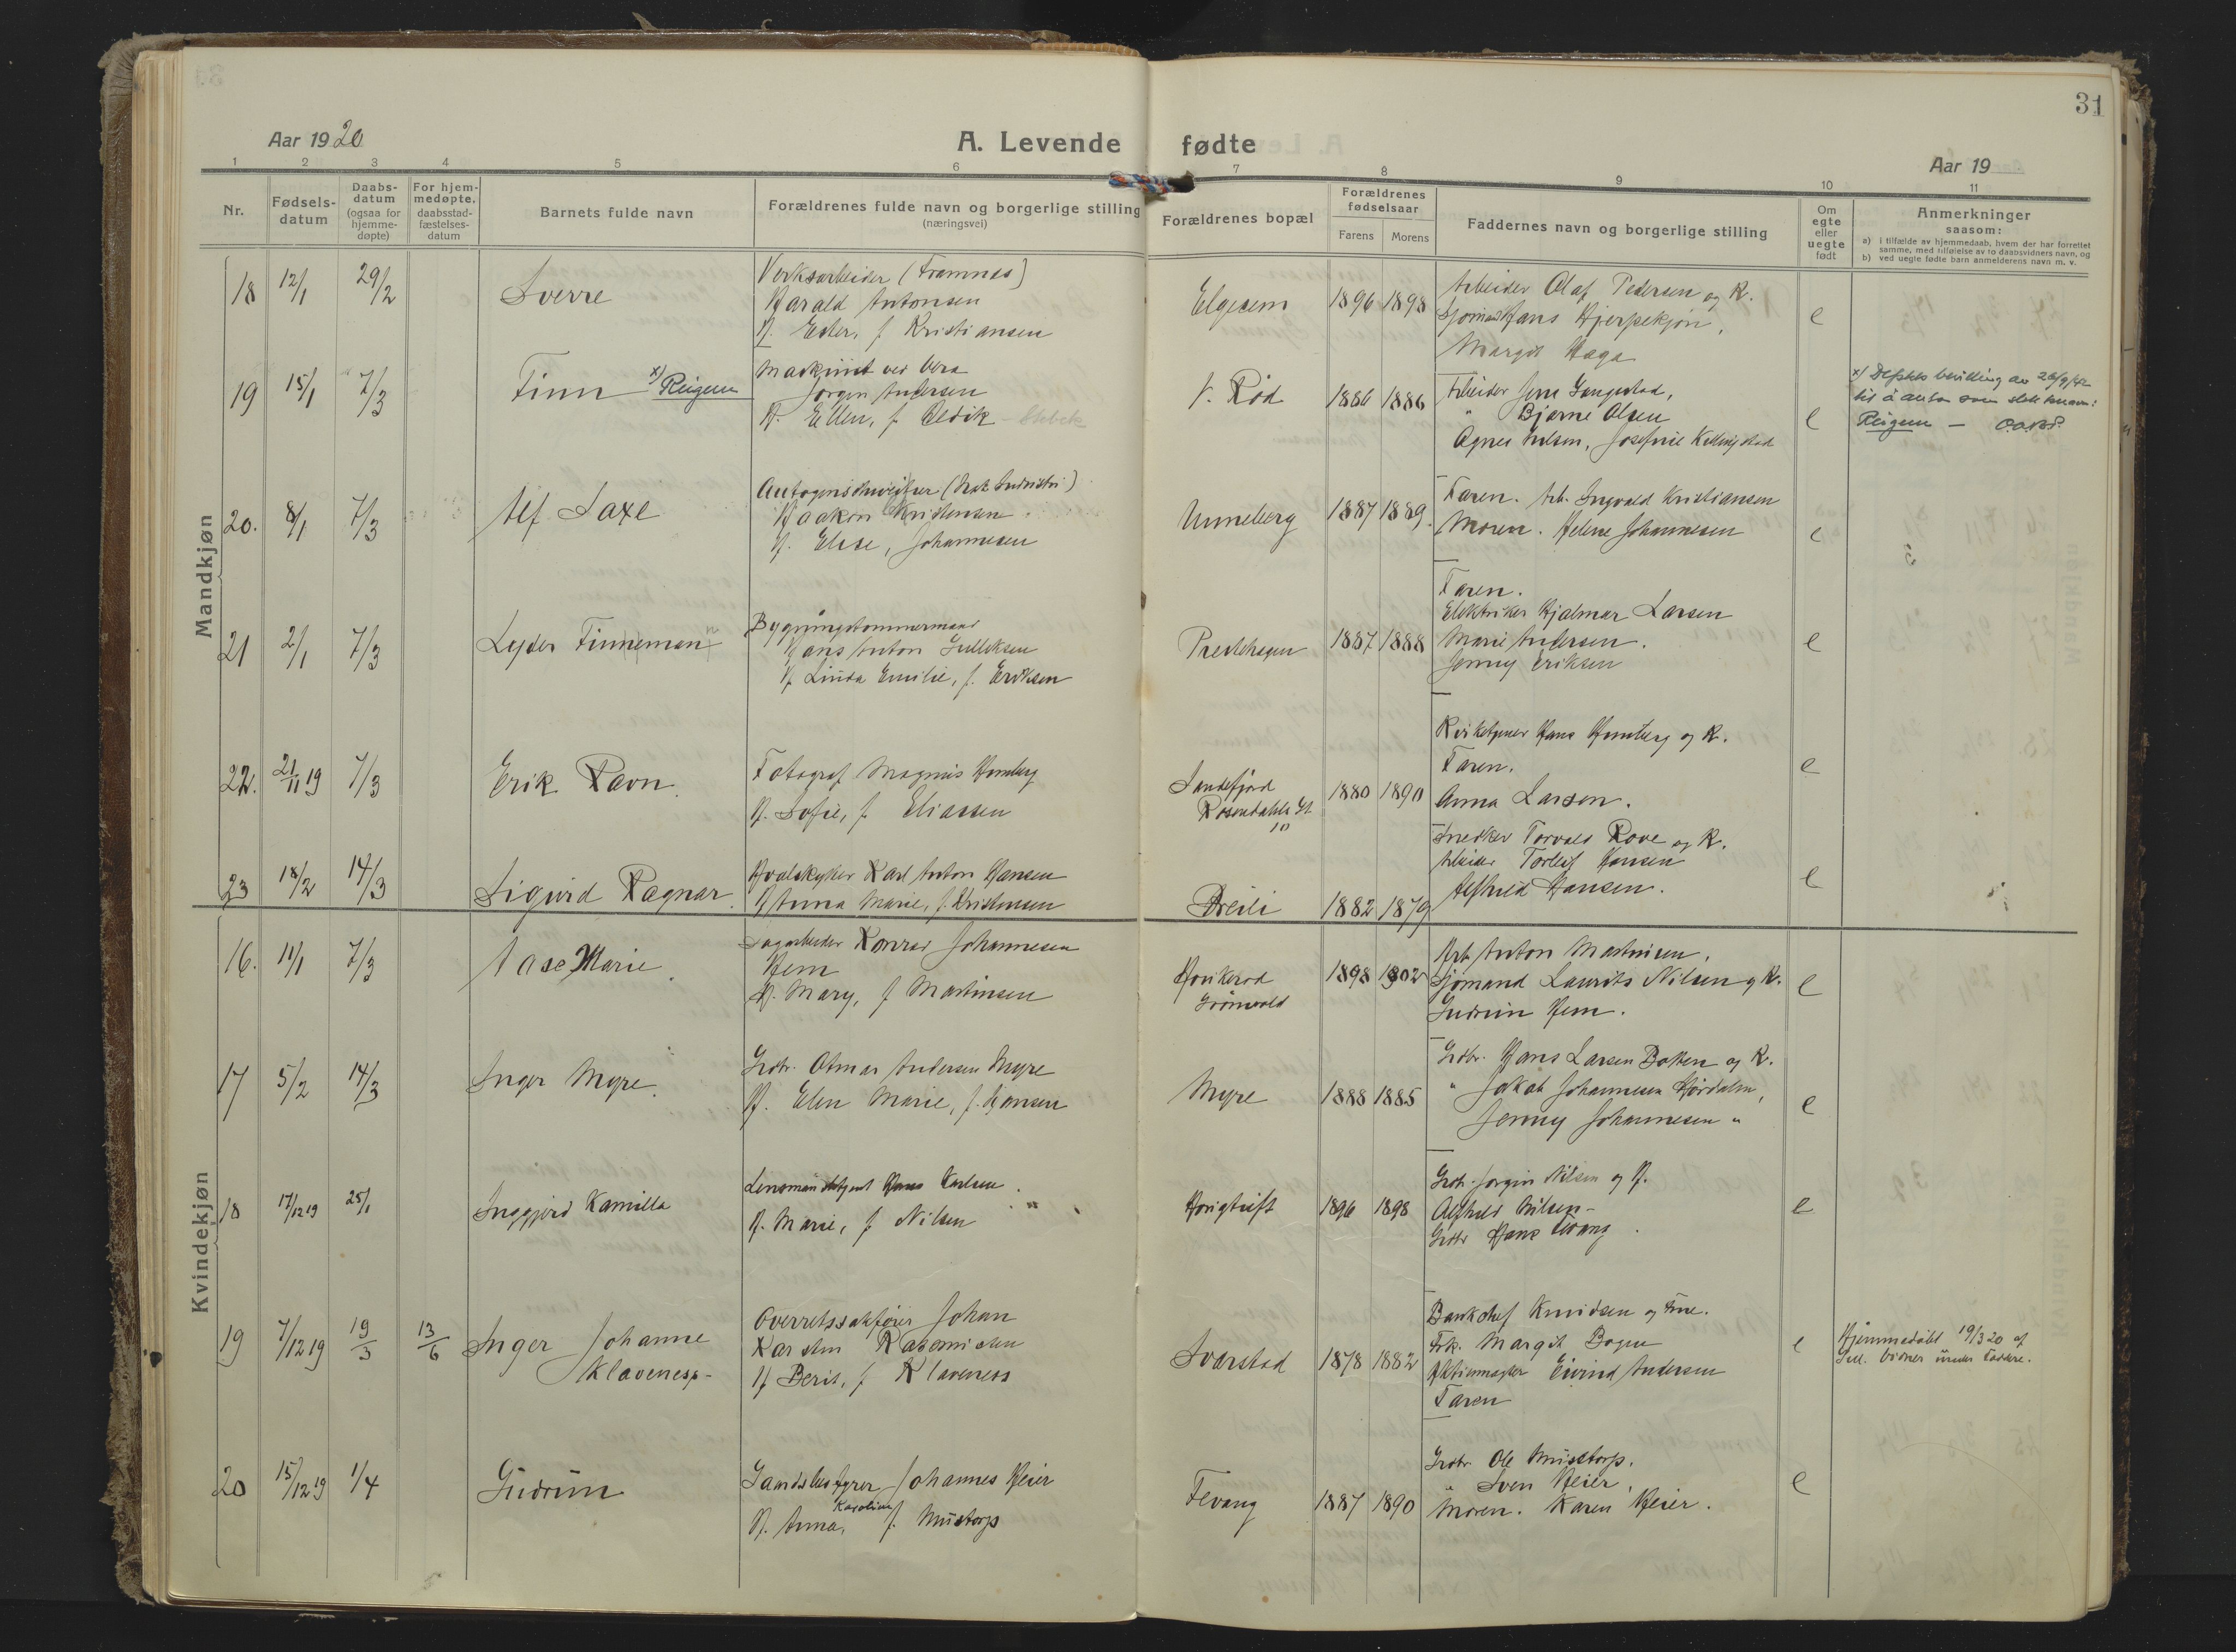 31
Aar 1920
A. Levende fødte
Aar 19
1 2 3 4 5 6 7 8 9 10 11
Nr.
Fødsels-
datum
Daabs-
datum
(ogsaa for
hjemme-
døpte)
For hjem-
medøpte.
daabsstad-
fæstelses-
datum
Barnets fulde navn
Forældrenes fulde navn og borgerlige stilling
(næringsvei)
Forældrenes bopæl
Forældrenes
fødselsaar
Farens Morens
Faddernes navn og borgerlige stilling
Om
egte
eller
uegte
født
Anmerkninger
saasom:
a) i tilfælde av hjemmedaab, hvem der har forrettet
samme, med tilføielse av to daabsvidners navn, og
b) ved uegte fødte barn anmelderens navn m. v.
Mandkjøn
18 12/1 29/2 Sverre
Verksarbeider (Framnæs)
Harald Antonsen
H. Ester, f. Kristiansen
Elgesem 1896 1898
Arbeider Olaf Pedersen og K.
Sjømand Hans
Margit Haga
e
19 15/1 7/3 Finn x) Reigem
Maskinist ved Vera
Jørgen Andersen
H. Ellen, f.
V. Rød 1886 1886
Arbeider Jens
" Bjarne Olsen
Agnes Josefine
e
x) bevilling av 26/9/42
til å anta som slektsnavn:
Reigem —
20. 8/1 7/3 Alf Saxe
Haakon Kristensen
H. Elise, Johannesen
Unneberg 1887 1889
Faren. Arb. Ingvald Kristiansen
Moren. Helene Johannesen
e
21 2/1 7/3 Lyder Finneman
Bygningstømmermand
Hans Anton Gulliksen
H. Linda Emilie, f. Eriksen
Prestehagen 1887 1888
Faren.
Elektriker Hjalmar Larsen
Marie Andersen.
Jenny Eriksen
e
22. 21/11 19 7/3 Erik Ravn.
Fotograf Magnus
H. Sofie, f. Eliassen
Sandefjord
Rosendahls Gt
10
1880 1890
Kirketjener Hans og K.
Faren.
Anna Larsen.
e
23 18/2 14/3 Sigurd Ragnar.
Hvalskytter Karl Anton Hansen
H. Anna Marie, f. Kristensen
Breili 1882 1879
Snedker Torvald Rove og K.
Arbeider Torleif Hansen
Alfhild Hansen.
e
Kvindekjøn
16. 11/1 7/3 Aase Marie.
Dagarbeider Konrad Johannesen
Hem
H. Mary, f. Martinsen
Haukerød
Grønvold
1898 1902
Arb. Anton Martinsen,
Sjømand Laurits Nilsen og K.
Gudrun Hem.
e
17 5/2 14/3 Inger Myre.
Grdbr. Otmar Andersen Myre
H. Elen Marie, f. Hansen
Myre 1888 1885
Grdbr. Hans Larsen Botten og K.
" Jakob Johannesen
Jenny Johannesen "
e
18 17/12 19 25/1 Inggjerd Kamilla
Lensmandsbetjent Hans Karlsen.
H. Marie, f. Nilsen
1896 1898
Grdbr. Jørgen Nilsen og H.
Alfhild Nilsen
Grdbr Hans
e
19 7/12 19 19/3 13/6 Inger Johanne
Klaveness-
Overretssakfører Johan
Karsten
H. Berit, f. Klaveness
Svarstad 1878 1882
Bankchef Knudsen og Frue.
Frk. Margit Bogen
Eivind Andersen
Faren
e
Hjemmedøbt 19/3 20 af
Vidner under Faddere.
20 15/12 19 1/4 Gudrun
Gaardsbestyrer Johannes Meier
Karoline
H. Anna, f. Mustorp
Fevang 1887 1890
Grdbr. Ole Mustorp.
" Sven Meier,
Moren. Karen Meier.
e